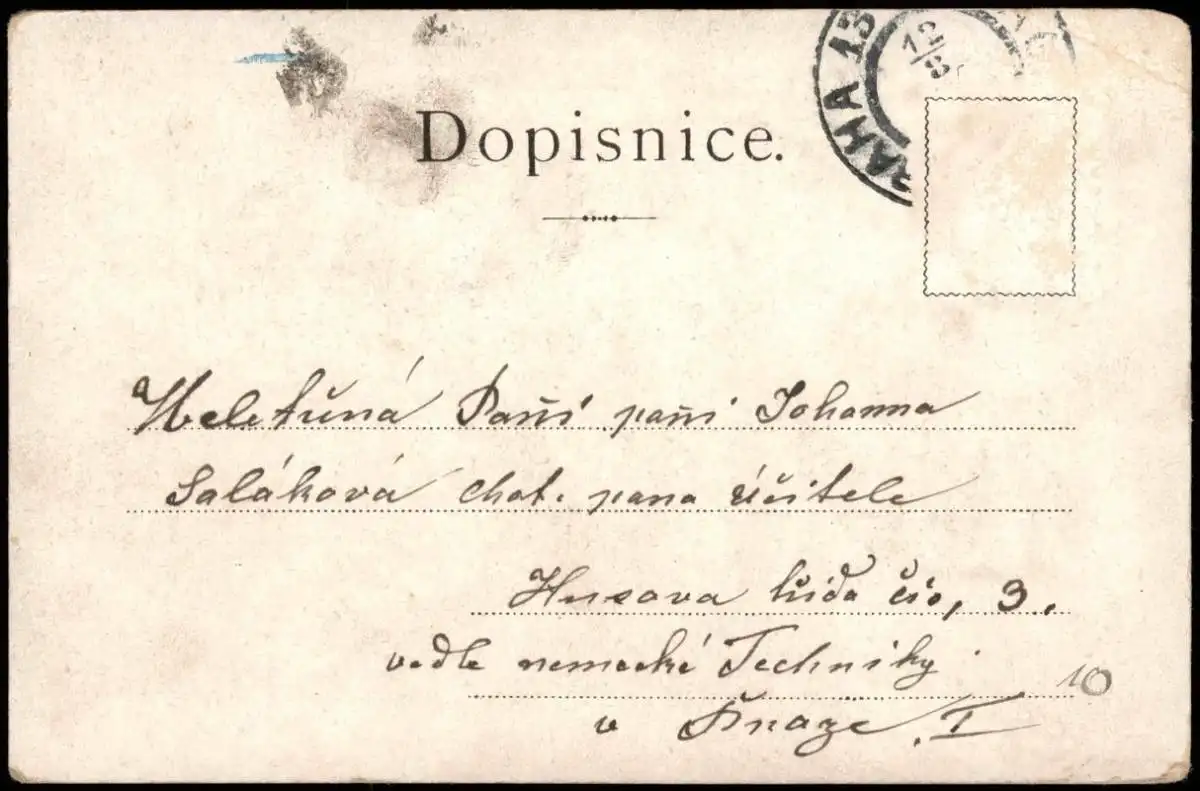 Dopisnice.
PRAHA 13
12/3
Veletěná Paní paní Johanna
Saláková chot. pana účitele
Husova třída čís, 3.
vedle nemecké Techniky
v Praze I
10